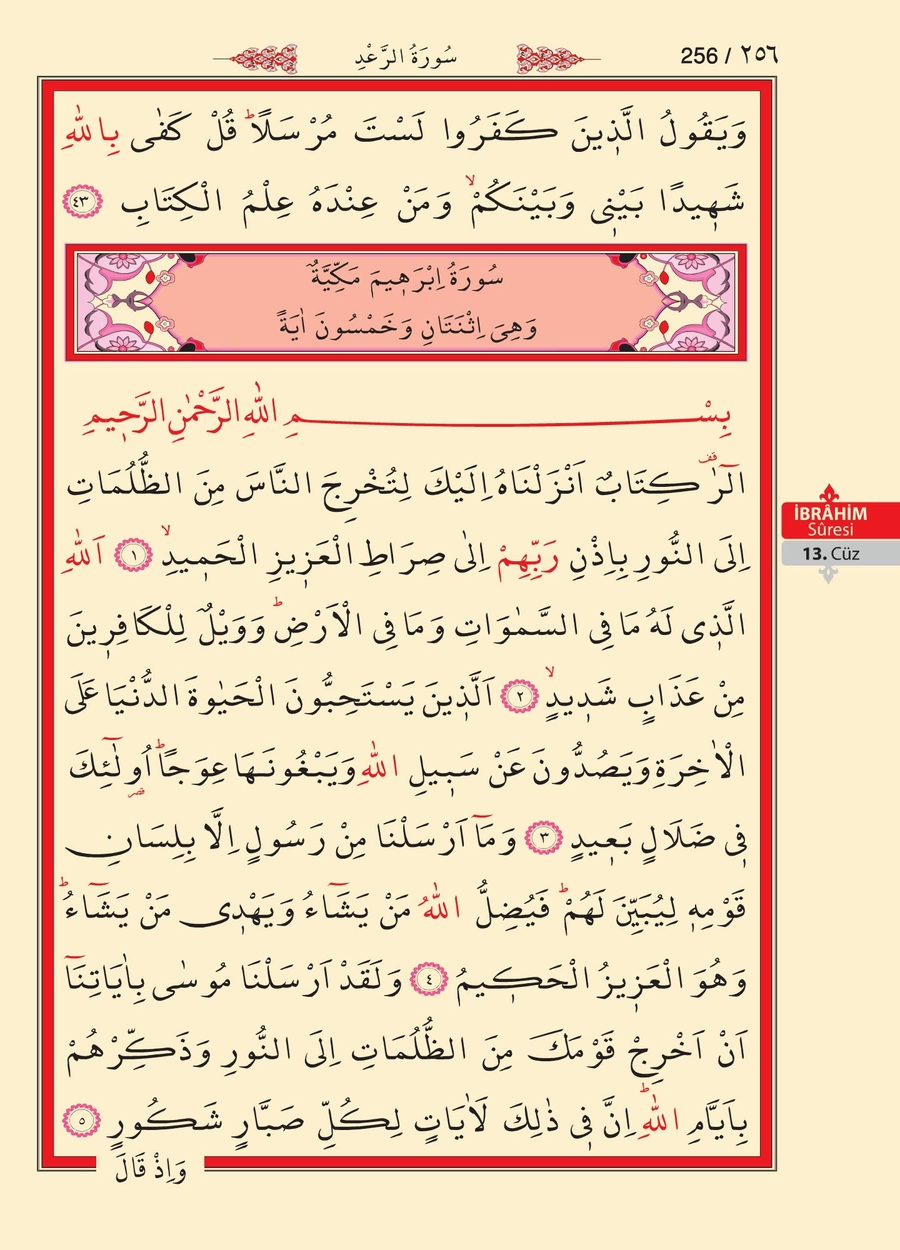 سُورَةُ الرَّعْدِ
256 / ٢٥٦
وَيَقُولُ الَّذ۪ينَ كَفَرُوا لَسْتَ مُرْسَلًاۜ قُلْ كَفٰى بِاللّٰهِ
شَه۪يدًا بَيْن۪ي وَبَيْنَكُمْۙ وَمَنْ عِنْدَهُ عِلْمُ الْكِتَابِ ﴿٤٣﴾
سُورَةُ اِبْرَه۪يمَ مَكِّيَّةٌ
وَهِىَ اِثْنَتَانِ وَخَمْسُونَ اٰيَةً
بِسْمِ اللّٰهِ الرَّحْمٰنِ الرَّح۪يمِ
الٓرٰ۠ كِتَابٌ اَنْزَلْنَاهُ اِلَيْكَ لِتُخْرِجَ النَّاسَ مِنَ الظُّلُمَاتِ
اِلَى النُّورِ بِاِذْنِ رَبِّهِمْ اِلٰى صِرَاطِ الْعَز۪يزِ الْحَم۪يدِۙ ﴿١﴾ اَللّٰهِ
الَّذ۪ى لَهُ مَا فِى السَّمٰوَاتِ وَمَا فِى الْاَرْضِۜ وَوَيْلٌ لِلْكَافِر۪ينَ
مِنْ عَذَابٍ شَد۪يدٍۙ ﴿٢﴾ اَلَّذ۪ينَ يَسْتَحِبُّونَ الْحَيٰوةَ الدُّنْيَا عَلَى
الْاٰخِرَةِ وَيَصُدُّونَ عَنْ سَب۪يلِ اللّٰهِ وَيَبْغُونَهَا عِوَجًاۜ اُو۬لٰٓئِكَ
ف۪ى ضَلَالٍ بَع۪يدٍ ﴿٣﴾ وَمَٓا اَرْسَلْنَا مِنْ رَسُولٍ اِلَّا بِلِسَانِ
قَوْمِه۪ لِيُبَيِّنَ لَهُمْۜ فَيُضِلُّ اللّٰهُ مَنْ يَشَٓاءُ وَيَهْد۪ى مَنْ يَشَٓاءُۜ
وَهُوَ الْعَز۪يزُ الْحَك۪يمُ ﴿٤﴾ وَلَقَدْ اَرْسَلْنَا مُوسٰى بِاٰيَاتِنَٓا
اَنْ اَخْرِجْ قَوْمَكَ مِنَ الظُّلُمَاتِ اِلَى النُّورِ وَذَكِّرْهُمْ
بِاَيَّامِ اللّٰهِۜ اِنَّ ف۪ى ذٰلِكَ لَاٰيَاتٍ لِكُلِّ صَبَّارٍ شَكُورٍ ﴿٥﴾
وَاِذْ قَالَ
İBRÂHİM
Sûresi
13. Cüz